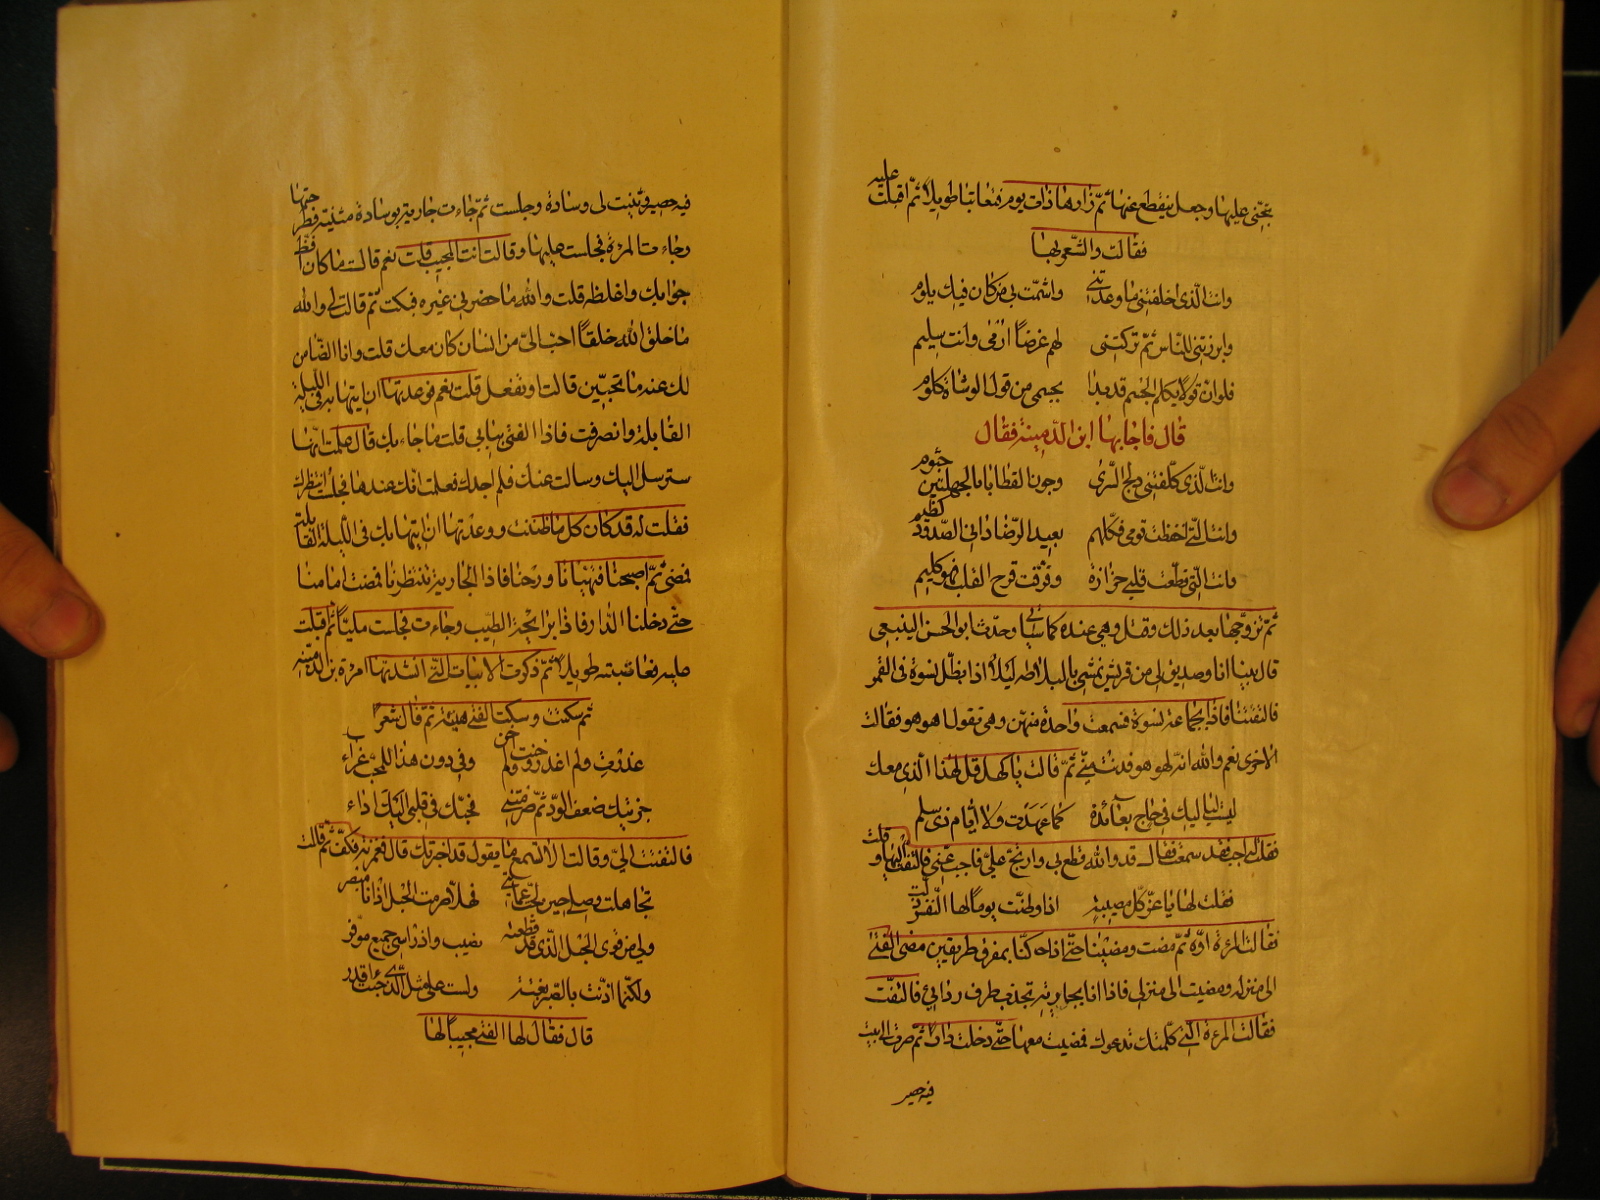 يتجنى عليها وجعل ينقطع عنها ثم زارها ذات يوم فتعاتبا طويلا ثم اقبلت عليه
فقالت والشعر لها
وانت الذى اخلفتنى ما وعدتنى واشمت بى من كان فيك يلوم
وابرزتنى للناس ثم تركتنى لهم غرضاً ارمى وانت سليم
فلو ان قولا يكلم الجسم قد بدا بجسمى من قول الوشاة كلوم
قال فاجابها ابن الدمينة فقال
وانت الذى كلفتنى دلج السرى وجون القطا بالجهلتين جثوم
وانت التى احفظت قومى فكلهم بعيد الرضا دانى الصدود كظيم
وانت التى قطعت قلبى حزازة وفرقت قرح القلب فهو كليم
ثم تزوجها بعد ذلك وقتل وهى عنده كما سياتى وحدث ابو الحسن الينبعى
قال بينا انا وصديق لى من قريش نمشى بالبلاط ليلاً اذا بظل نسوة فى القمر
فالتفتنا فاذا بجماعة نسوة فسمعت واحدة منهن وهى تقول اهو هو فقالت
الاخرى نعم والله انه لهو هو فدنت منى ثم قالت يا كهل قل لهذا الذى معك
ليست لياليك فى حاج بعائدة كما عهدت ولا ايام ذى سلم
فقلت اجب فقد سمعت فقال قد والله قطع بى وارتج على فاجب عنى فالتفت اليها وقلت
فقلت لها يا عز كل مصيبة اذا وطنت يوماً لها النفس ذلت
فقالت المرءة اوه ثم مضت ومضينا حتى اذا كنا بمفرق طريقين مضى الفتى
الى منزله ومضيت الى منزلى فاذا انا بجارية تجذب طرف ردائى فالتفت
فقالت المرءة التى كلمتك تدعوك فمضيت معها حتى دخلت دارا ثم صرت الى بيت
فيه حصير
فيه حصير وثنيت لى وسادة وجلست ثم جاءت جارية بوسادة مثنية فطرحتها
وجاءت المرءة فجلست عليها وقالت انت المجيب قلت نعم قالت ما كان افظ
جوابك واغلظه قلت والله ما حضر بى غيره فبكت ثم قالت لى والله
ما خلق الله خلقاً احب الى من انسان كان معك قلت وانا الضامن
لك عنه ما تحبين قالت او تفعل قلت نعم فوعدتها ان اتيها به فى الليلة
القابلة وانصرفت فاذا الفتى ببابى قلت ما جاء بك قال علمت انها
سترسل اليك وسالت عنك فلم اجدك فعلمت انك عندها فجلست انتظرك
فقلت له قد كان كل ما ظننت ووعدتها ان اتيها بك فى الليلة القابلة
فمضى ثم اصبحنا فتهيانا ورحنا فاذا الجارية تنتظرنا فمضت امامنا
حتى دخلنا الدار فاذا برائحة الطيب وجاءت فجلست مليّاً ثم اقبلت
عليه فعاتبته طويلاً ثم ذكرت الابيات التى انشدتها امرءة بن الدمينه
ثم سكتت وسكت الفتى هنيئة ثم قال شعرا
غدرت ولم اغدر وخنت ولم اخن وفى دون هذا للمحب عزاء
جزيتك ضعف الود ثم صرمتنى فحبك فى قلبى اليك اداء
فالتفتت الى وقالت الا تسمع ما يقول قد اخبرتك قال فغمزته فكف ثم قالت
تجاهلت وصلى حين لجت عمايتى فهلا صرمت الحبل اذ انا مبصر
ولى من قوى الحبل الذى قد قطعته نصيب واذ راى جميع موفر
ولكنما اذنت بالصرم بغتة ولست على مثل الذى جئت اقدر
قال فقال لها الفتى مجيباً لها